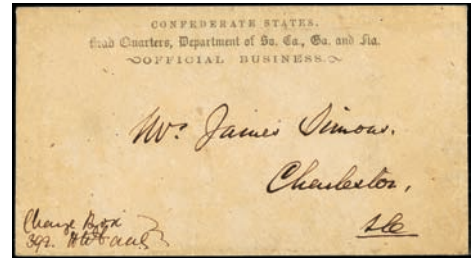 CONFEDERATE STATES.
Head Quarters, Department of So. Ca., Ga. and Fla.
OFFICIAL BUSINESS.
Mr. James Simons.
Charleston,
SC
Charge Box
392.